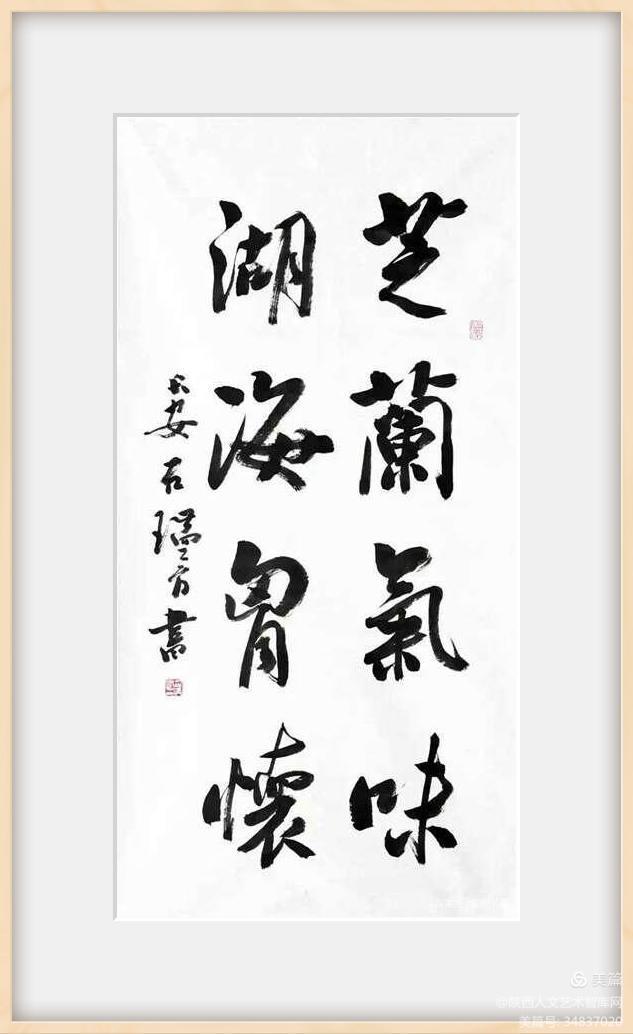 芝蘭氣味
湖海胷懷
長安石瑞芳書
美篇
@陕西人文艺术智库网
美篇号: 34837020